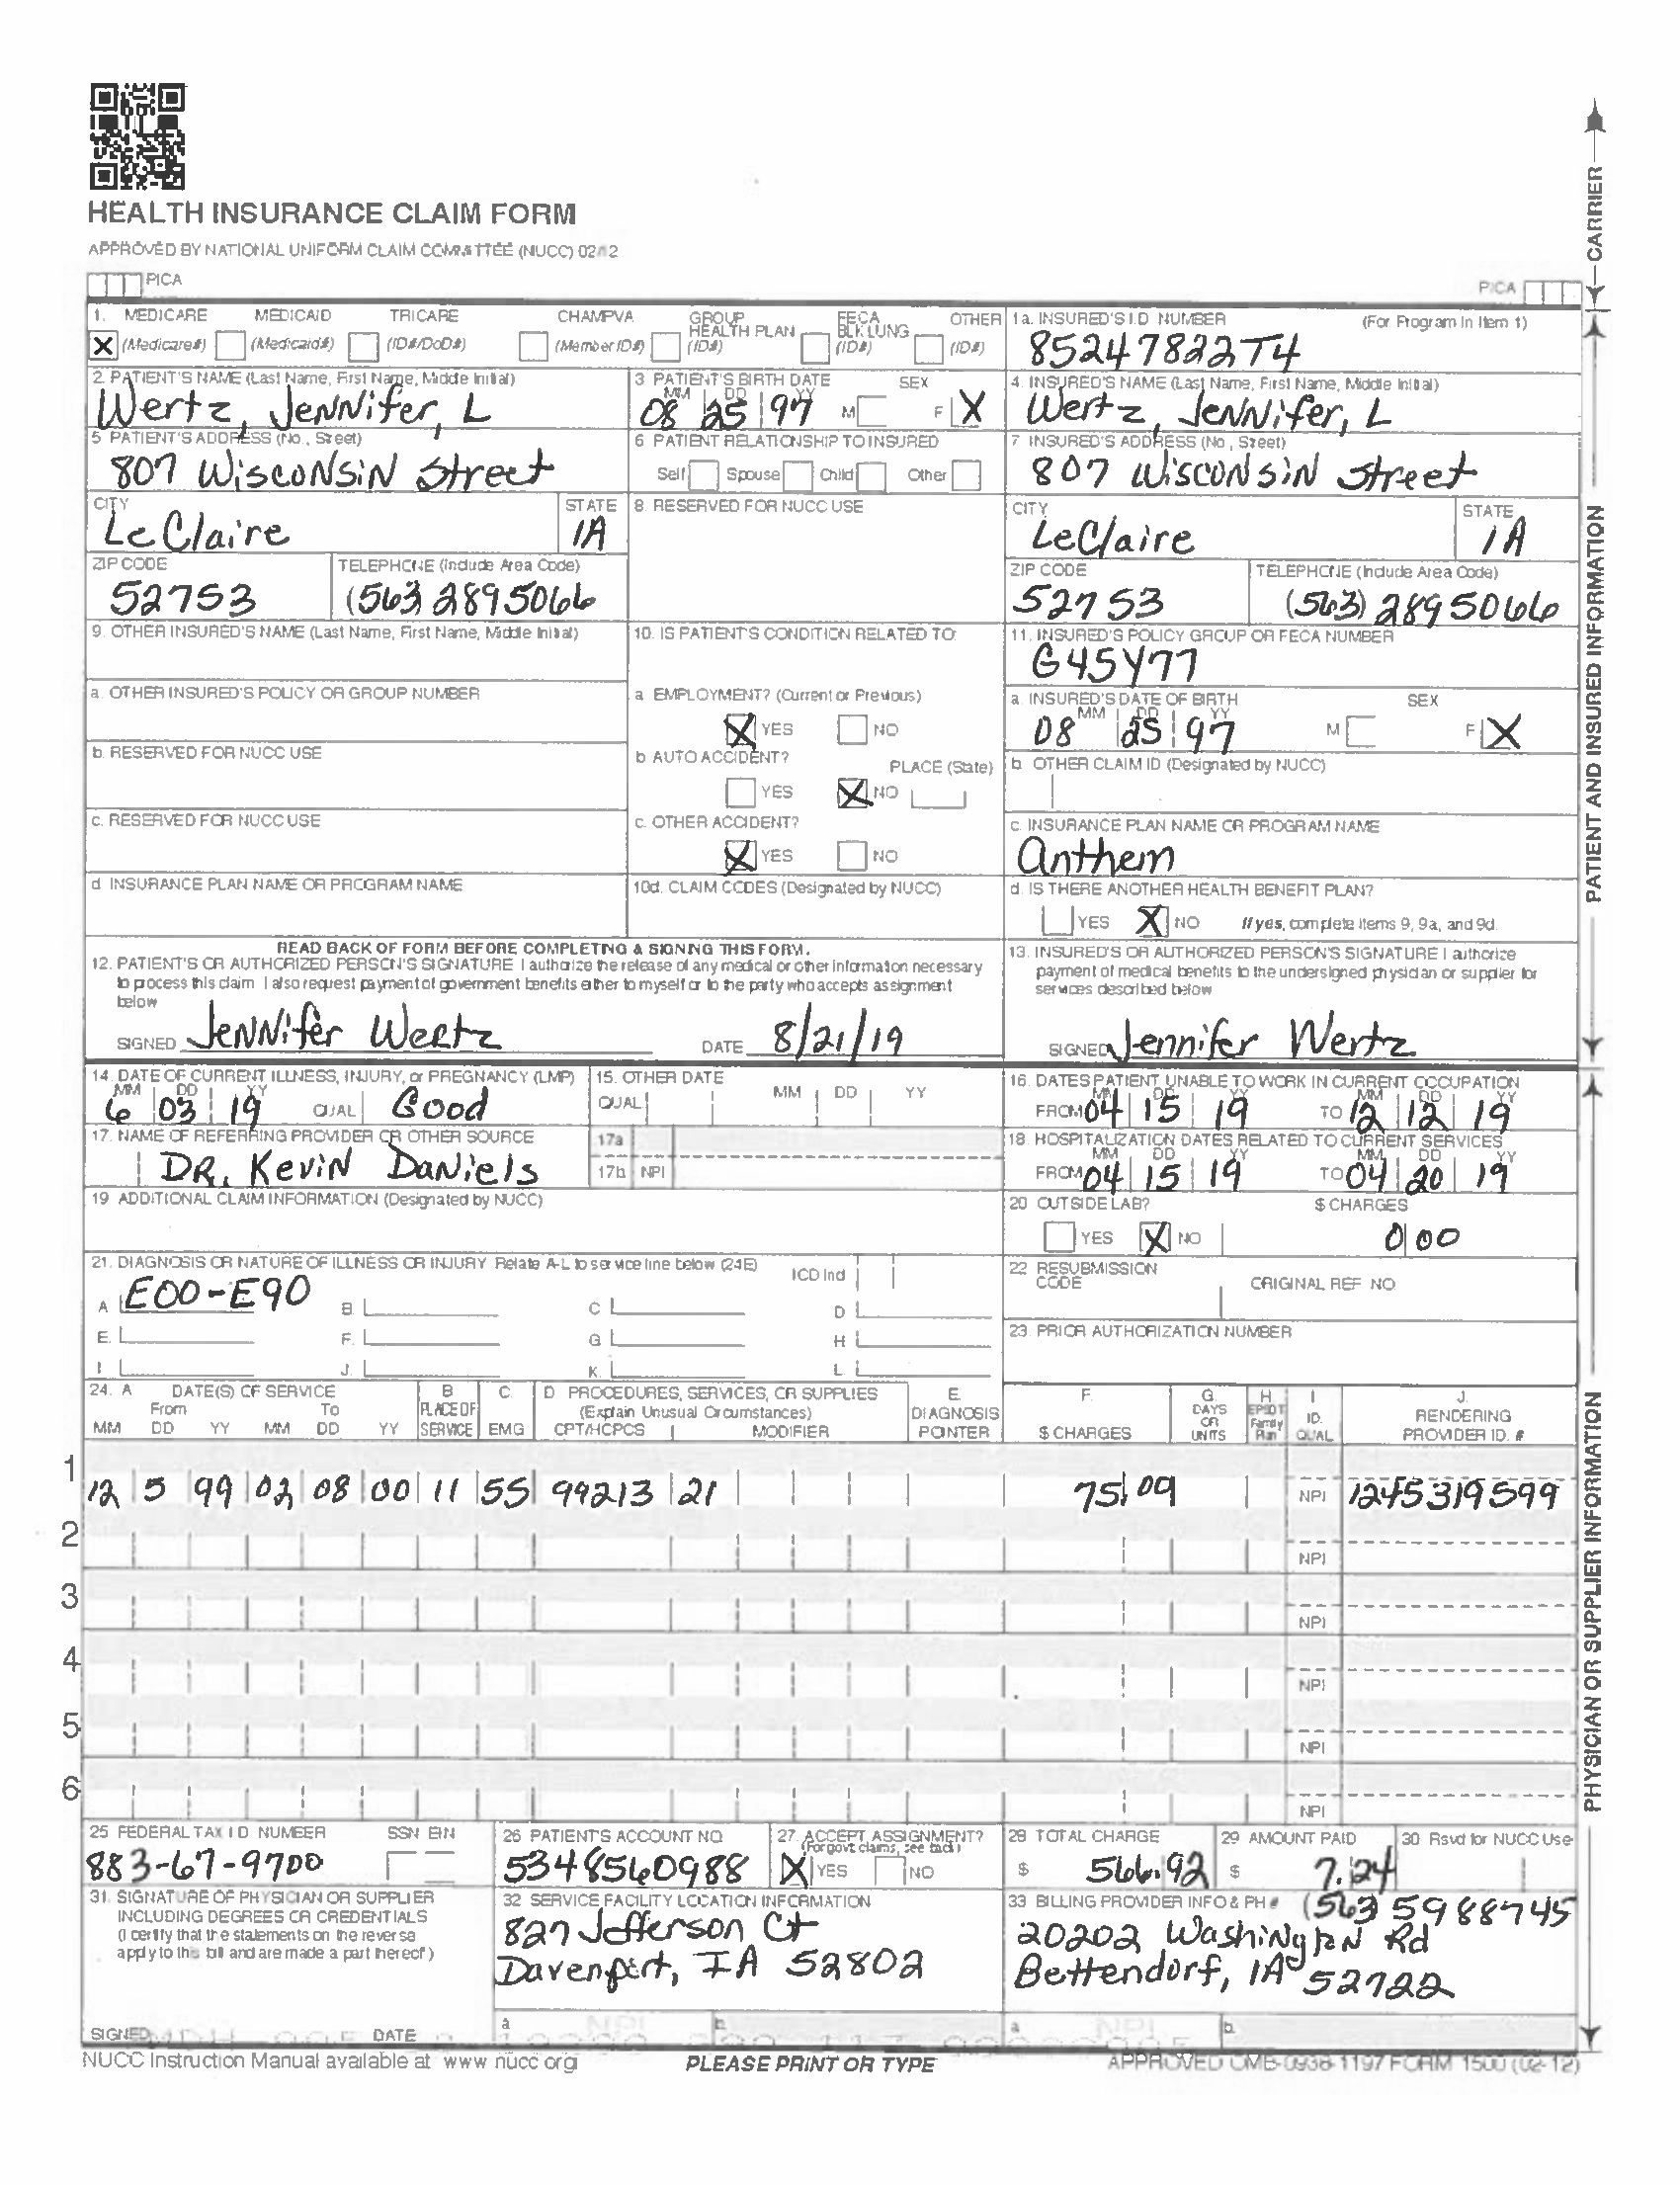 HEALTH INSURANCE CLAIM FORM
APPROVED BY NATIONAL UNIFORM CLAIM COMMITTEE (NUCC) 02/12
PICA
PICA
CARRIER
1. MEDICARE MEDICAID TRICARE CHAMPVA GROUP HEALTH PLAN FECA BLK LUNG OTHER
X (Medicare#) (Medicaid#) (ID#/DoD#) (Member ID#) (ID#) (ID#) (ID#)
1a. INSURED'S I.D. NUMBER (For Program in Item 1)
85247822T4
2. PATIENT'S NAME (Last Name, First Name, Middle Initial)
Wertz, Jennifer, L
3 PATIENT'S BIRTH DATE SEX
MM DD YY
08 25 97 M F X
4. INSURED'S NAME (Last Name, First Name, Middle Initial)
Wertz, Jennifer, L
5 PATIENT'S ADDRESS (No., Street)
807 Wisconsin Street
6 PATIENT RELATIONSHIP TO INSURED
Self Spouse Child Other
7 INSURED'S ADDRESS (No, Street)
807 Wisconsin Street
CITY STATE
LeClaire IA
8. RESERVED FOR NUCC USE
CITY STATE
LeClaire IA
ZIP CODE TELEPHONE (Include Area Code)
52753 (563 2895066
ZIP CODE TELEPHONE (Include Area Code)
52753 (563) 2895066
9. OTHER INSURED'S NAME (Last Name, First Name, Middle Initial)
10. IS PATIENT'S CONDITION RELATED TO:
11. INSURED'S POLICY GROUP OR FECA NUMBER
G45Y77
a. OTHER INSURED'S POLICY OR GROUP NUMBER
a EMPLOYMENT? (Current or Previous)
X YES NO
a. INSURED'S DATE OF BIRTH SEX
MM DD YY
08 25 97 M F X
b. RESERVED FOR NUCC USE
b AUTO ACCIDENT? PLACE (State)
YES X NO
b. OTHER CLAIM ID (Designated by NUCC)
c. RESERVED FOR NUCC USE
c. OTHER ACCIDENT?
X YES NO
c. INSURANCE PLAN NAME OR PROGRAM NAME
Anthem
d INSURANCE PLAN NAME OR PROGRAM NAME
10d. CLAIM CODES (Designated by NUCC)
d. IS THERE ANOTHER HEALTH BENEFIT PLAN?
YES X NO If yes, complete items 9, 9a, and 9d.
READ BACK OF FORM BEFORE COMPLETING & SIGNING THIS FORM.
12. PATIENT'S OR AUTHORIZED PERSON'S SIGNATURE I authorize the release of any medical or other information necessary
to process this claim I also request payment of government benefits either to myself or to the party who accepts assignment
below
SIGNED Jennifer Wertz DATE 8/21/19
13. INSURED'S OR AUTHORIZED PERSON'S SIGNATURE I authorize
payment of medical benefits to the undersigned physician or supplier for
services described below
SIGNED Jennifer Wertz
PATIENT AND INSURED INFORMATION
14. DATE OF CURRENT ILLNESS, INJURY, or PREGNANCY (LMP)
MM DD YY
6 03 19 QUAL Good
15. OTHER DATE
QUAL MM DD YY
16. DATES PATIENT UNABLE TO WORK IN CURRENT OCCUPATION
MM DD YY MM DD YY
FROM 04 15 19 TO 12 12 19
17. NAME OF REFERRING PROVIDER OR OTHER SOURCE
DR. Kevin Daniels
17a
17b NPI
18. HOSPITALIZATION DATES RELATED TO CURRENT SERVICES
MM DD YY MM DD YY
FROM 04 15 19 TO 04 20 19
19 ADDITIONAL CLAIM INFORMATION (Designated by NUCC)
20 OUTSIDE LAB? $ CHARGES
YES X NO 0 00
21. DIAGNOSIS OR NATURE OF ILLNESS OR INJURY Relate A-L to service line below (24E) ICD Ind
A E00-E90 B. C D
E. F. G H
I. J. K. L.
22 RESUBMISSION CODE ORIGINAL REF NO
23. PRIOR AUTHORIZATION NUMBER
24. A DATE(S) OF SERVICE B C. D PROCEDURES, SERVICES, OR SUPPLIES E. F. G. H I J.
From To PLACE OF (Explain Unusual Circumstances) DIAGNOSIS DAYS OR UNITS EPSDT Family Plan ID. RENDERING
MM DD YY MM DD YY SERVICE EMG CPT/HCPCS MODIFIER POINTER $ CHARGES QUAL PROVIDER ID. #
1 12 5 99 02 08 00 11 55 99213 21 75.09 NPI 1245319599
2 NPI
3 NPI
4 NPI
5 NPI
6 NPI
PHYSICIAN OR SUPPLIER INFORMATION
25 FEDERAL TAX I D NUMBER SSN EIN
883-67-9700
26 PATIENT'S ACCOUNT NO
5348560988
27. ACCEPT ASSIGNMENT?
(For govt claims, see back)
X YES NO
28 TOTAL CHARGE
$ 566.92
29 AMOUNT PAID
$ 7.24
30 Rsvd for NUCC Use
31. SIGNATURE OF PHYSICIAN OR SUPPLIER
INCLUDING DEGREES OR CREDENTIALS
(I certify that the statements on the reverse
apply to this bill and are made a part thereof)
SIGNED DATE
32 SERVICE FACILITY LOCATION INFORMATION
827 Jefferson Ct
Davenport, IA 52802
a. NPI b.
33 BILLING PROVIDER INFO & PH # (563 5988745
20202 Washington Rd
Bettendorf, IA 52722
a. NPI b.
NUCC Instruction Manual available at www nucc org
PLEASE PRINT OR TYPE
APPROVED OMB-0938-1197 FORM 1500 (02-12)